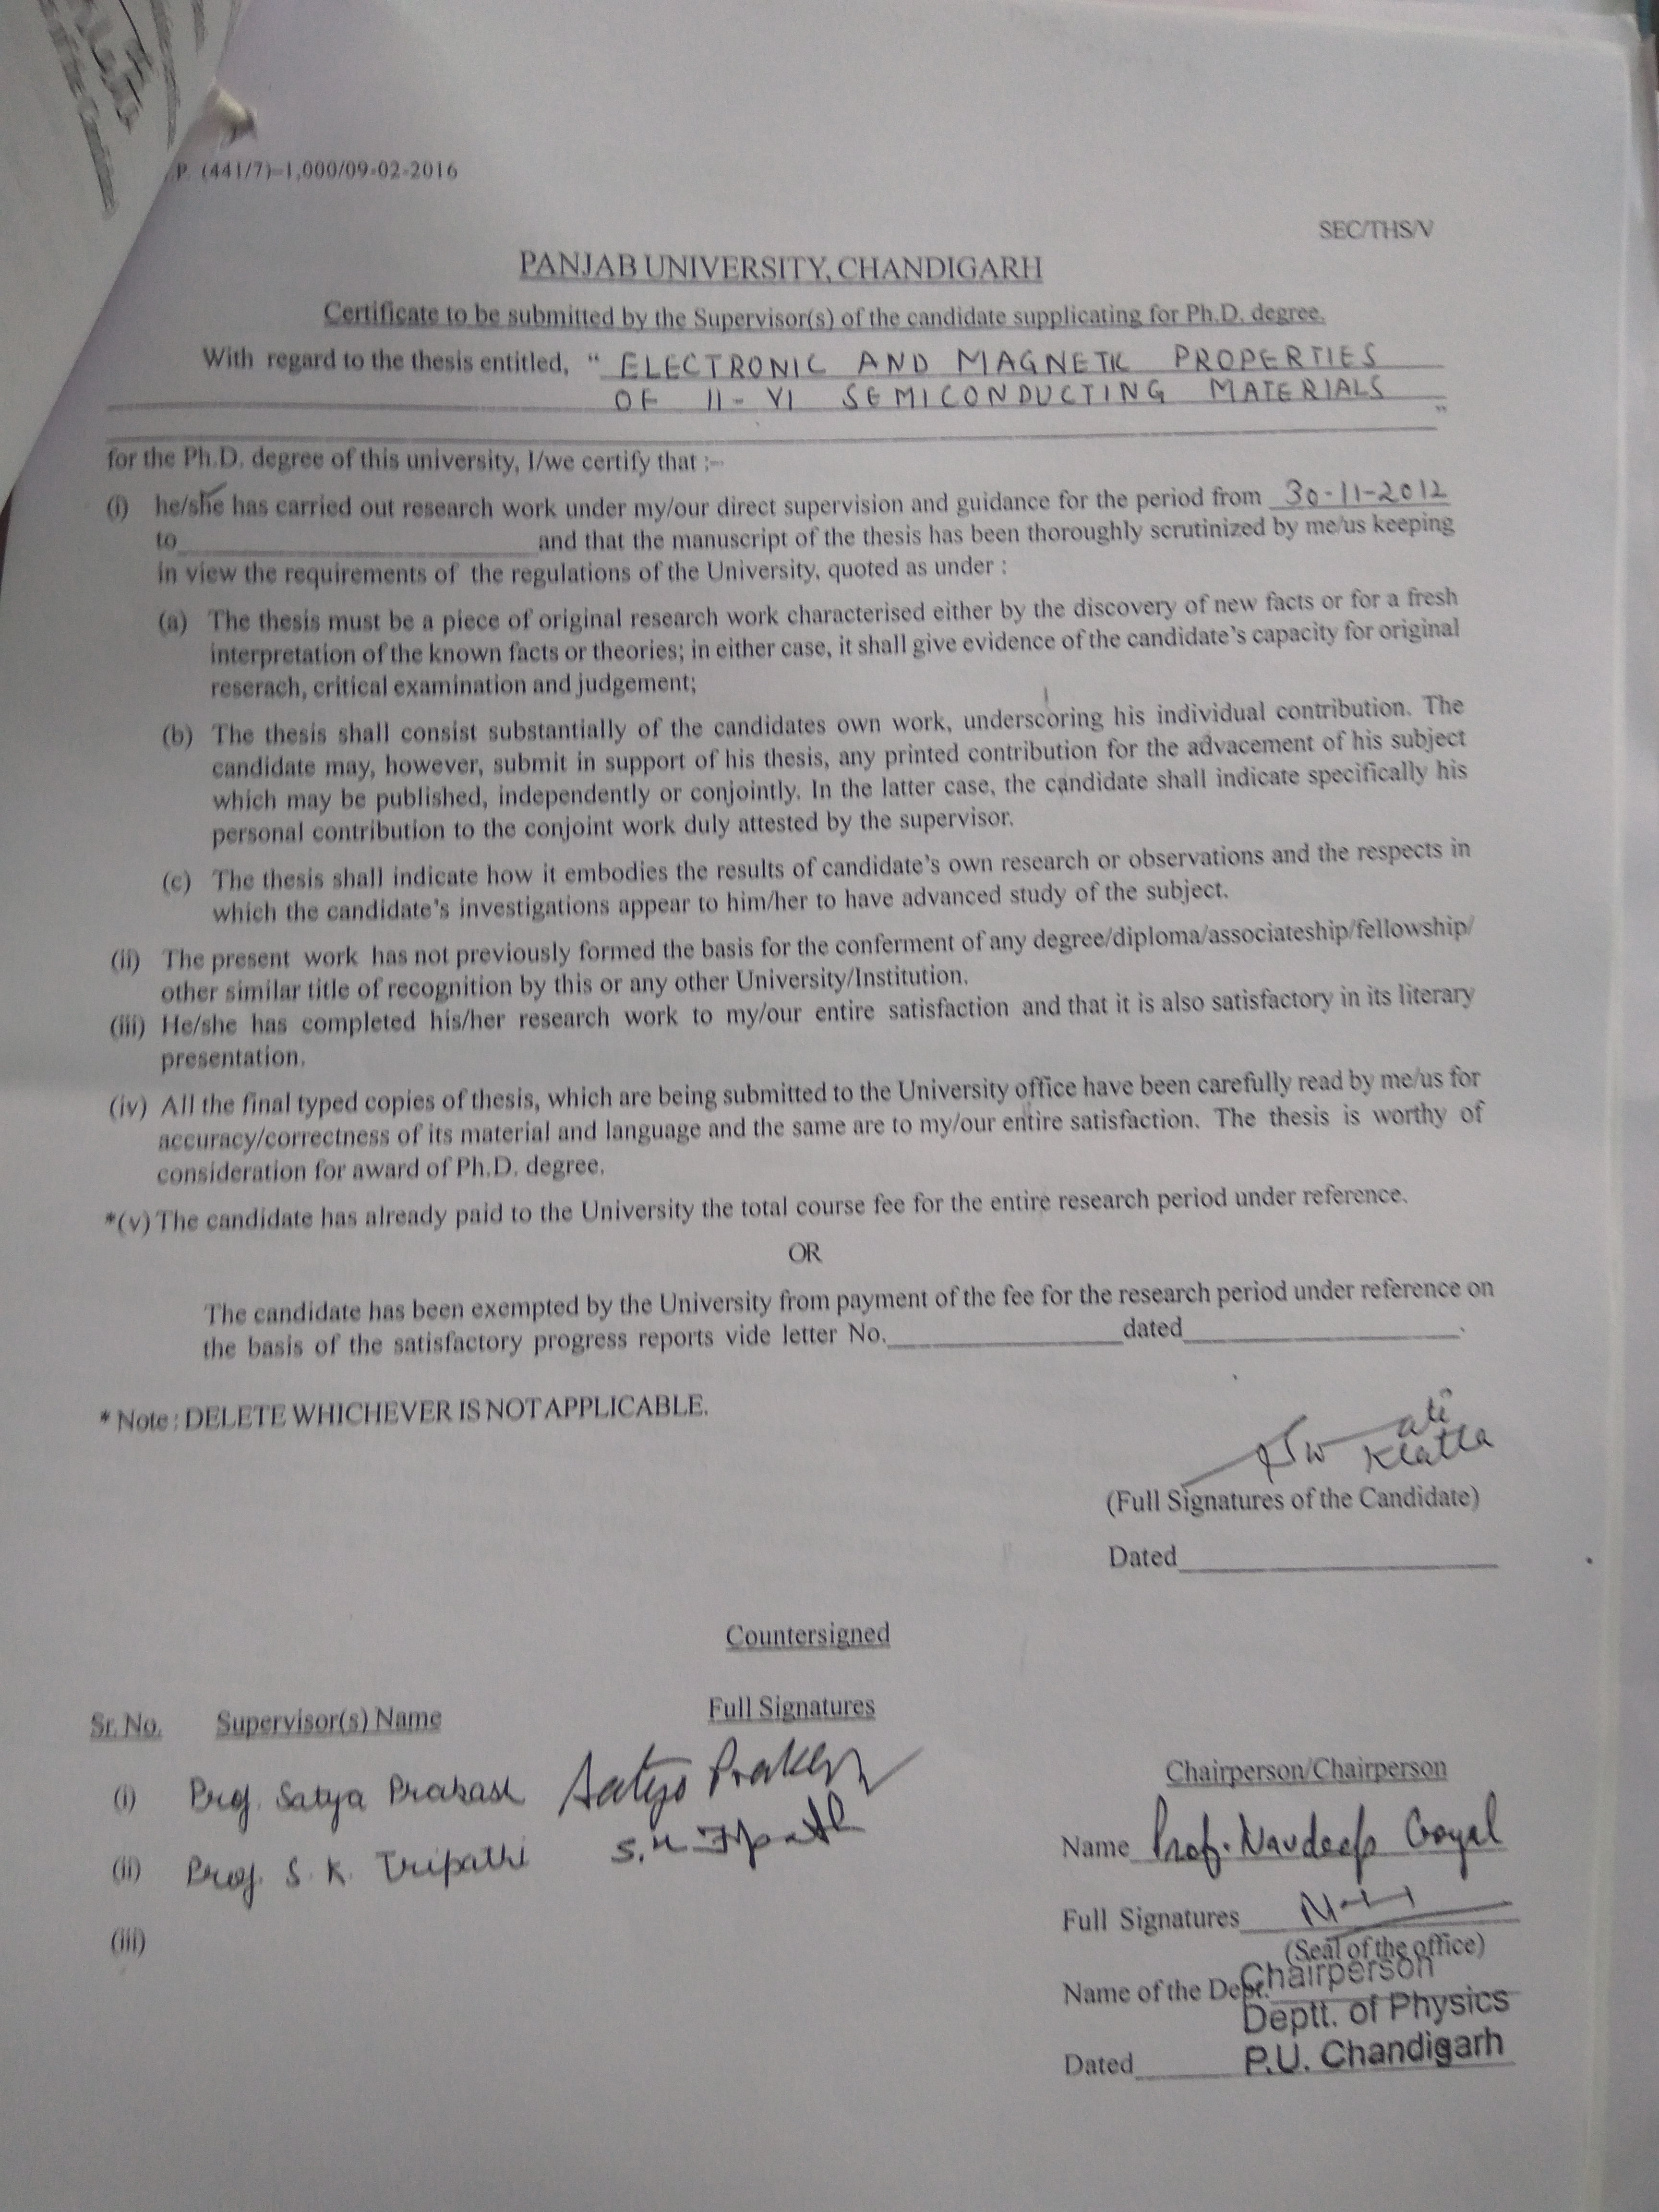 P. (441/7)-1,000/09-02-2016
SEC/THS/V
PANJAB UNIVERSITY, CHANDIGARH
Certificate to be submitted by the Supervisor(s) of the candidate supplicating for Ph.D. degree.
With regard to the thesis entitled, " ELECTRONIC AND MAGNETIC PROPERTIES
OF II-VI SEMICONDUCTING MATERIALS "
for the Ph.D. degree of this university, I/we certify that :-
(i) he/she has carried out research work under my/our direct supervision and guidance for the period from 30-11-2012
to____________and that the manuscript of the thesis has been thoroughly scrutinized by me/us keeping
in view the requirements of the regulations of the University, quoted as under :
(a) The thesis must be a piece of original research work characterised either by the discovery of new facts or for a fresh
interpretation of the known facts or theories; in either case, it shall give evidence of the candidate's capacity for original
reserach, critical examination and judgement;
(b) The thesis shall consist substantially of the candidates own work, underscoring his individual contribution. The
candidate may, however, submit in support of his thesis, any printed contribution for the advacement of his subject
which may be published, independently or conjointly. In the latter case, the candidate shall indicate specifically his
personal contribution to the conjoint work duly attested by the supervisor.
(c) The thesis shall indicate how it embodies the results of candidate's own research or observations and the respects in
which the candidate's investigations appear to him/her to have advanced study of the subject.
(ii) The present work has not previously formed the basis for the conferment of any degree/diploma/associateship/fellowship/
other similar title of recognition by this or any other University/Institution.
(iii) He/she has completed his/her research work to my/our entire satisfaction and that it is also satisfactory in its literary
presentation.
(iv) All the final typed copies of thesis, which are being submitted to the University office have been carefully read by me/us for
accuracy/correctness of its material and language and the same are to my/our entire satisfaction. The thesis is worthy of
consideration for award of Ph.D. degree.
*(v) The candidate has already paid to the University the total course fee for the entire research period under reference.
OR
The candidate has been exempted by the University from payment of the fee for the research period under reference on
the basis of the satisfactory progress reports vide letter No.____________dated____________.
* Note : DELETE WHICHEVER IS NOT APPLICABLE.
(Full Signatures of the Candidate)
Dated____________
Countersigned
Sr. No. Supervisor(s) Name Full Signatures
(i) Prof. Satya Prakash Satya Prakash
(ii) Prof. S. K. Tripathi S.K. Tripathi
(iii)
Chairperson/Chairperson
Name Prof. Navdeep Goyal
Full Signatures
(Seal of the office)
Name of the Dept. Chairperson
Deptt. of Physics
Dated P.U. Chandigarh